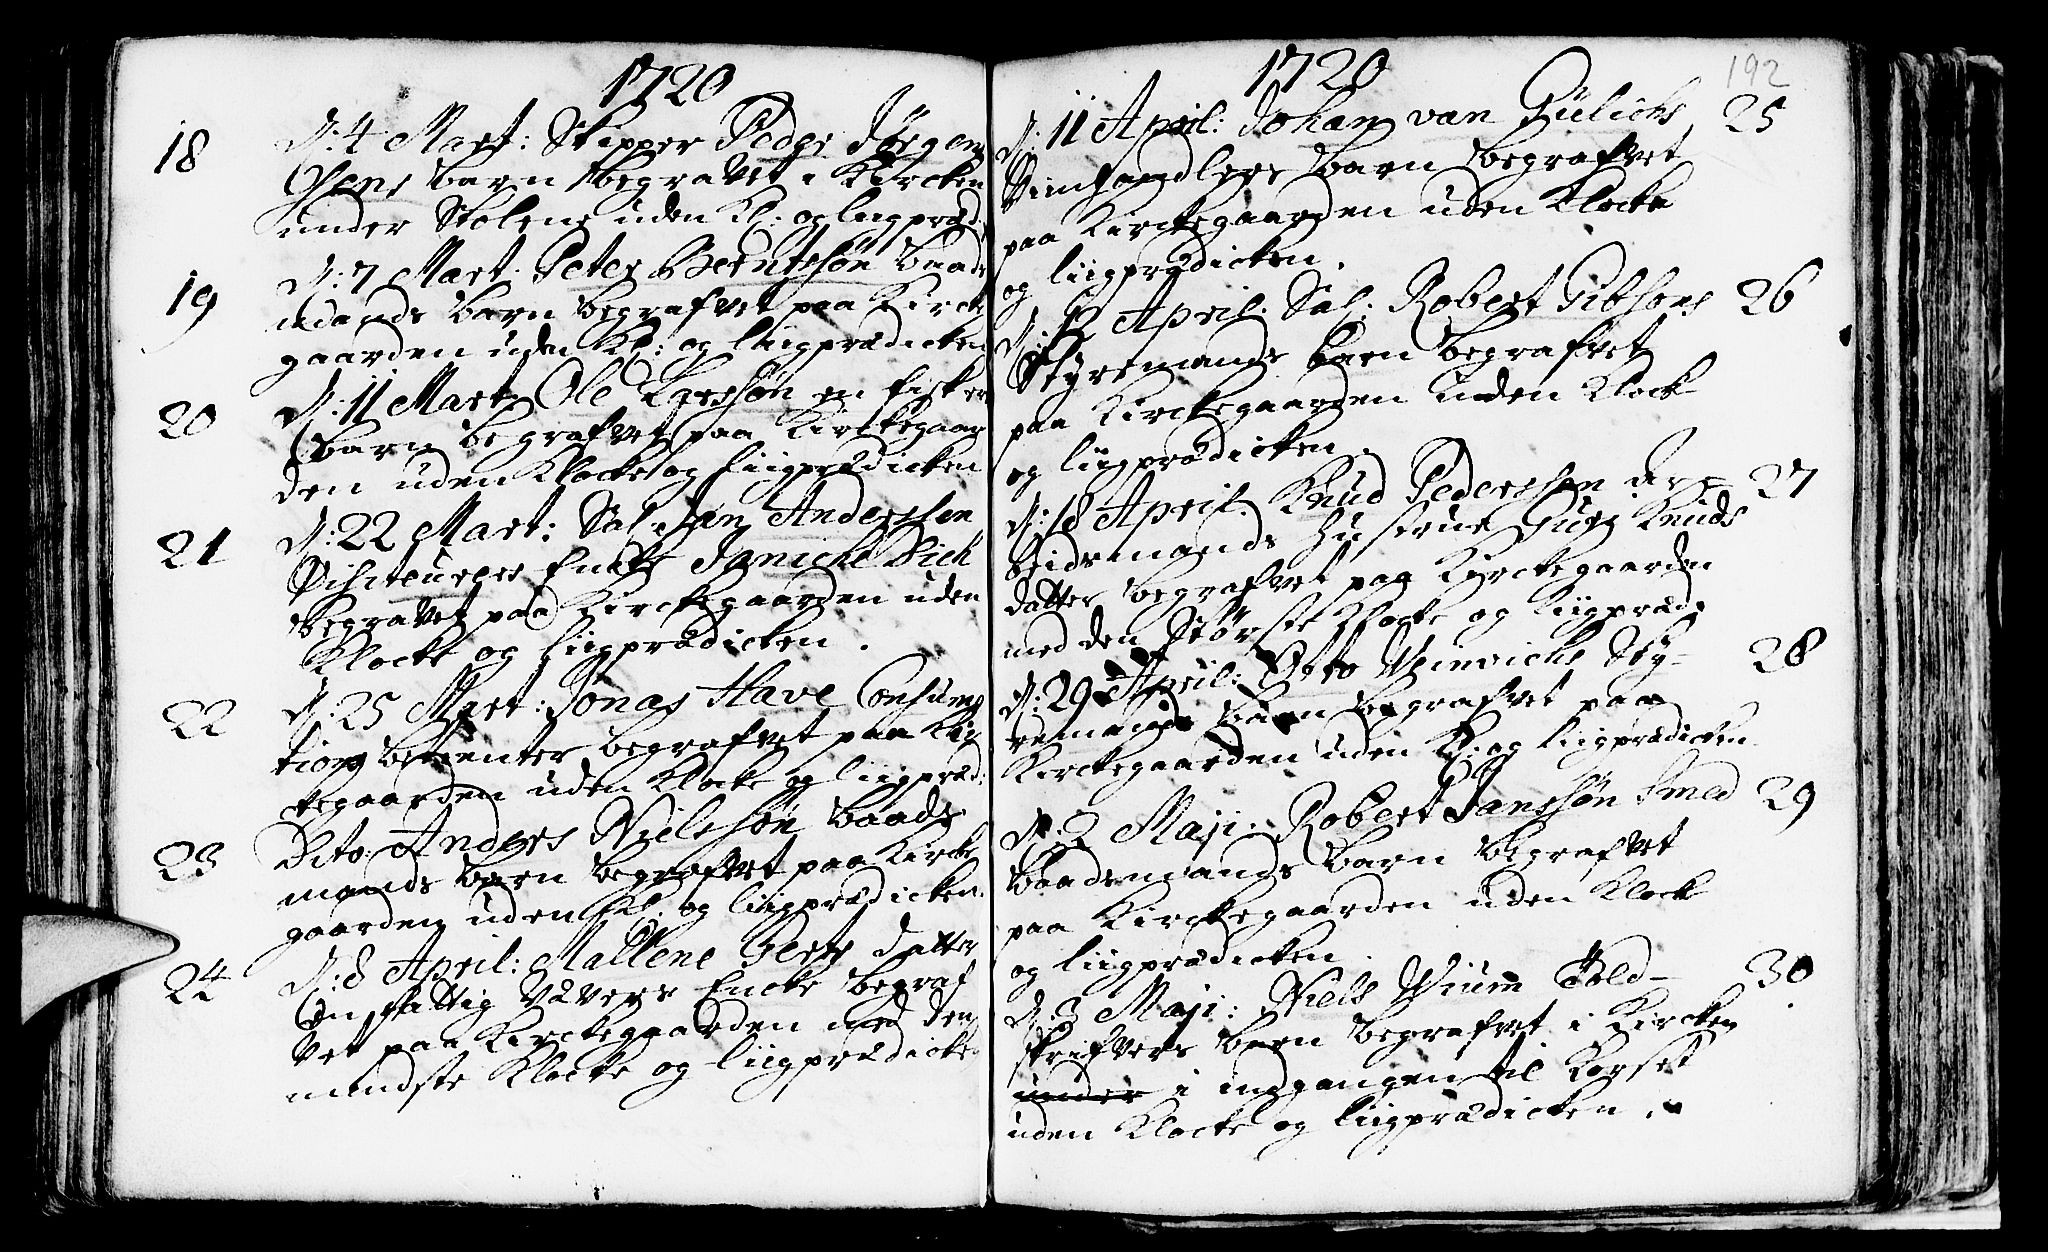 1720
18 d: 4 Mart: Skipper Peder Jörgen
Sens barn begravet i Kircken
under Stolene uden Kl: og liigpræd:
19 d: 7 Mart. Peter Berntssøn baads
mands barn begrafvet paa Kircke
gaarden uden Kl: og liigprædicken
20 d: 11 Mart. Ole Larssøn en fisker
barn begrafvet paa Kirckegaar
den uden Klocke og liigprædicken
21 d: 22 Mart: Sal. Jan Anderssen
Enke Janicke Dick
begravet paa Kirckegaarden uden
Klocke og liigprædicken.
22 d: 25 Mart: Jonas Have Consump
tions betienter begrafvet paa Kir
kegaarden uden Klocke og liigpræd:
23 Dito. Anders Nielssøn baads
mands barn begrafvet paa Kircke
gaarden uden Kl. og liigprædicken.
24 d: 8 April: Mallene Gerts datter
En fattig Vævers Encke begraf
vet paa Kirckegaarden med den
mindste Klocke og liigprædicken
192
1720
d: 11 April: Johan van Gülichs 25
Viinhandlers barn begrafvet
paa Kirckegaarden uden Klocke
og liigprædicken.
d: 12 April. Sal: Robert Gibsons 26
Styremands barn begrafvet
paa Kirckegaarden uden Klock
og liigprædicken.
d: 18 April. Knud Pederssen Ar= 27
beidsmands hustrue Guri Knuds
datter begrafvet paa Kirckegaarden
med den Største Klocke og liigpræd:
d: 29 April: Otto Weinrichs Sty= 28
remands barn begrafvet paa
Kirckegaarden uden Kl: og liigprædicken
d: 2 Maji: Robert Janssøn Smed 29
baadsmands barn begrafvet
paa Kirckegaarden uden Klock
og liigprædicken.
d: 3 Maji: Niels Wium Told= 30
skrifvers barn begrafvet i Kircken
under i indgangen til Korset
uden Klocke og liigprædicken.